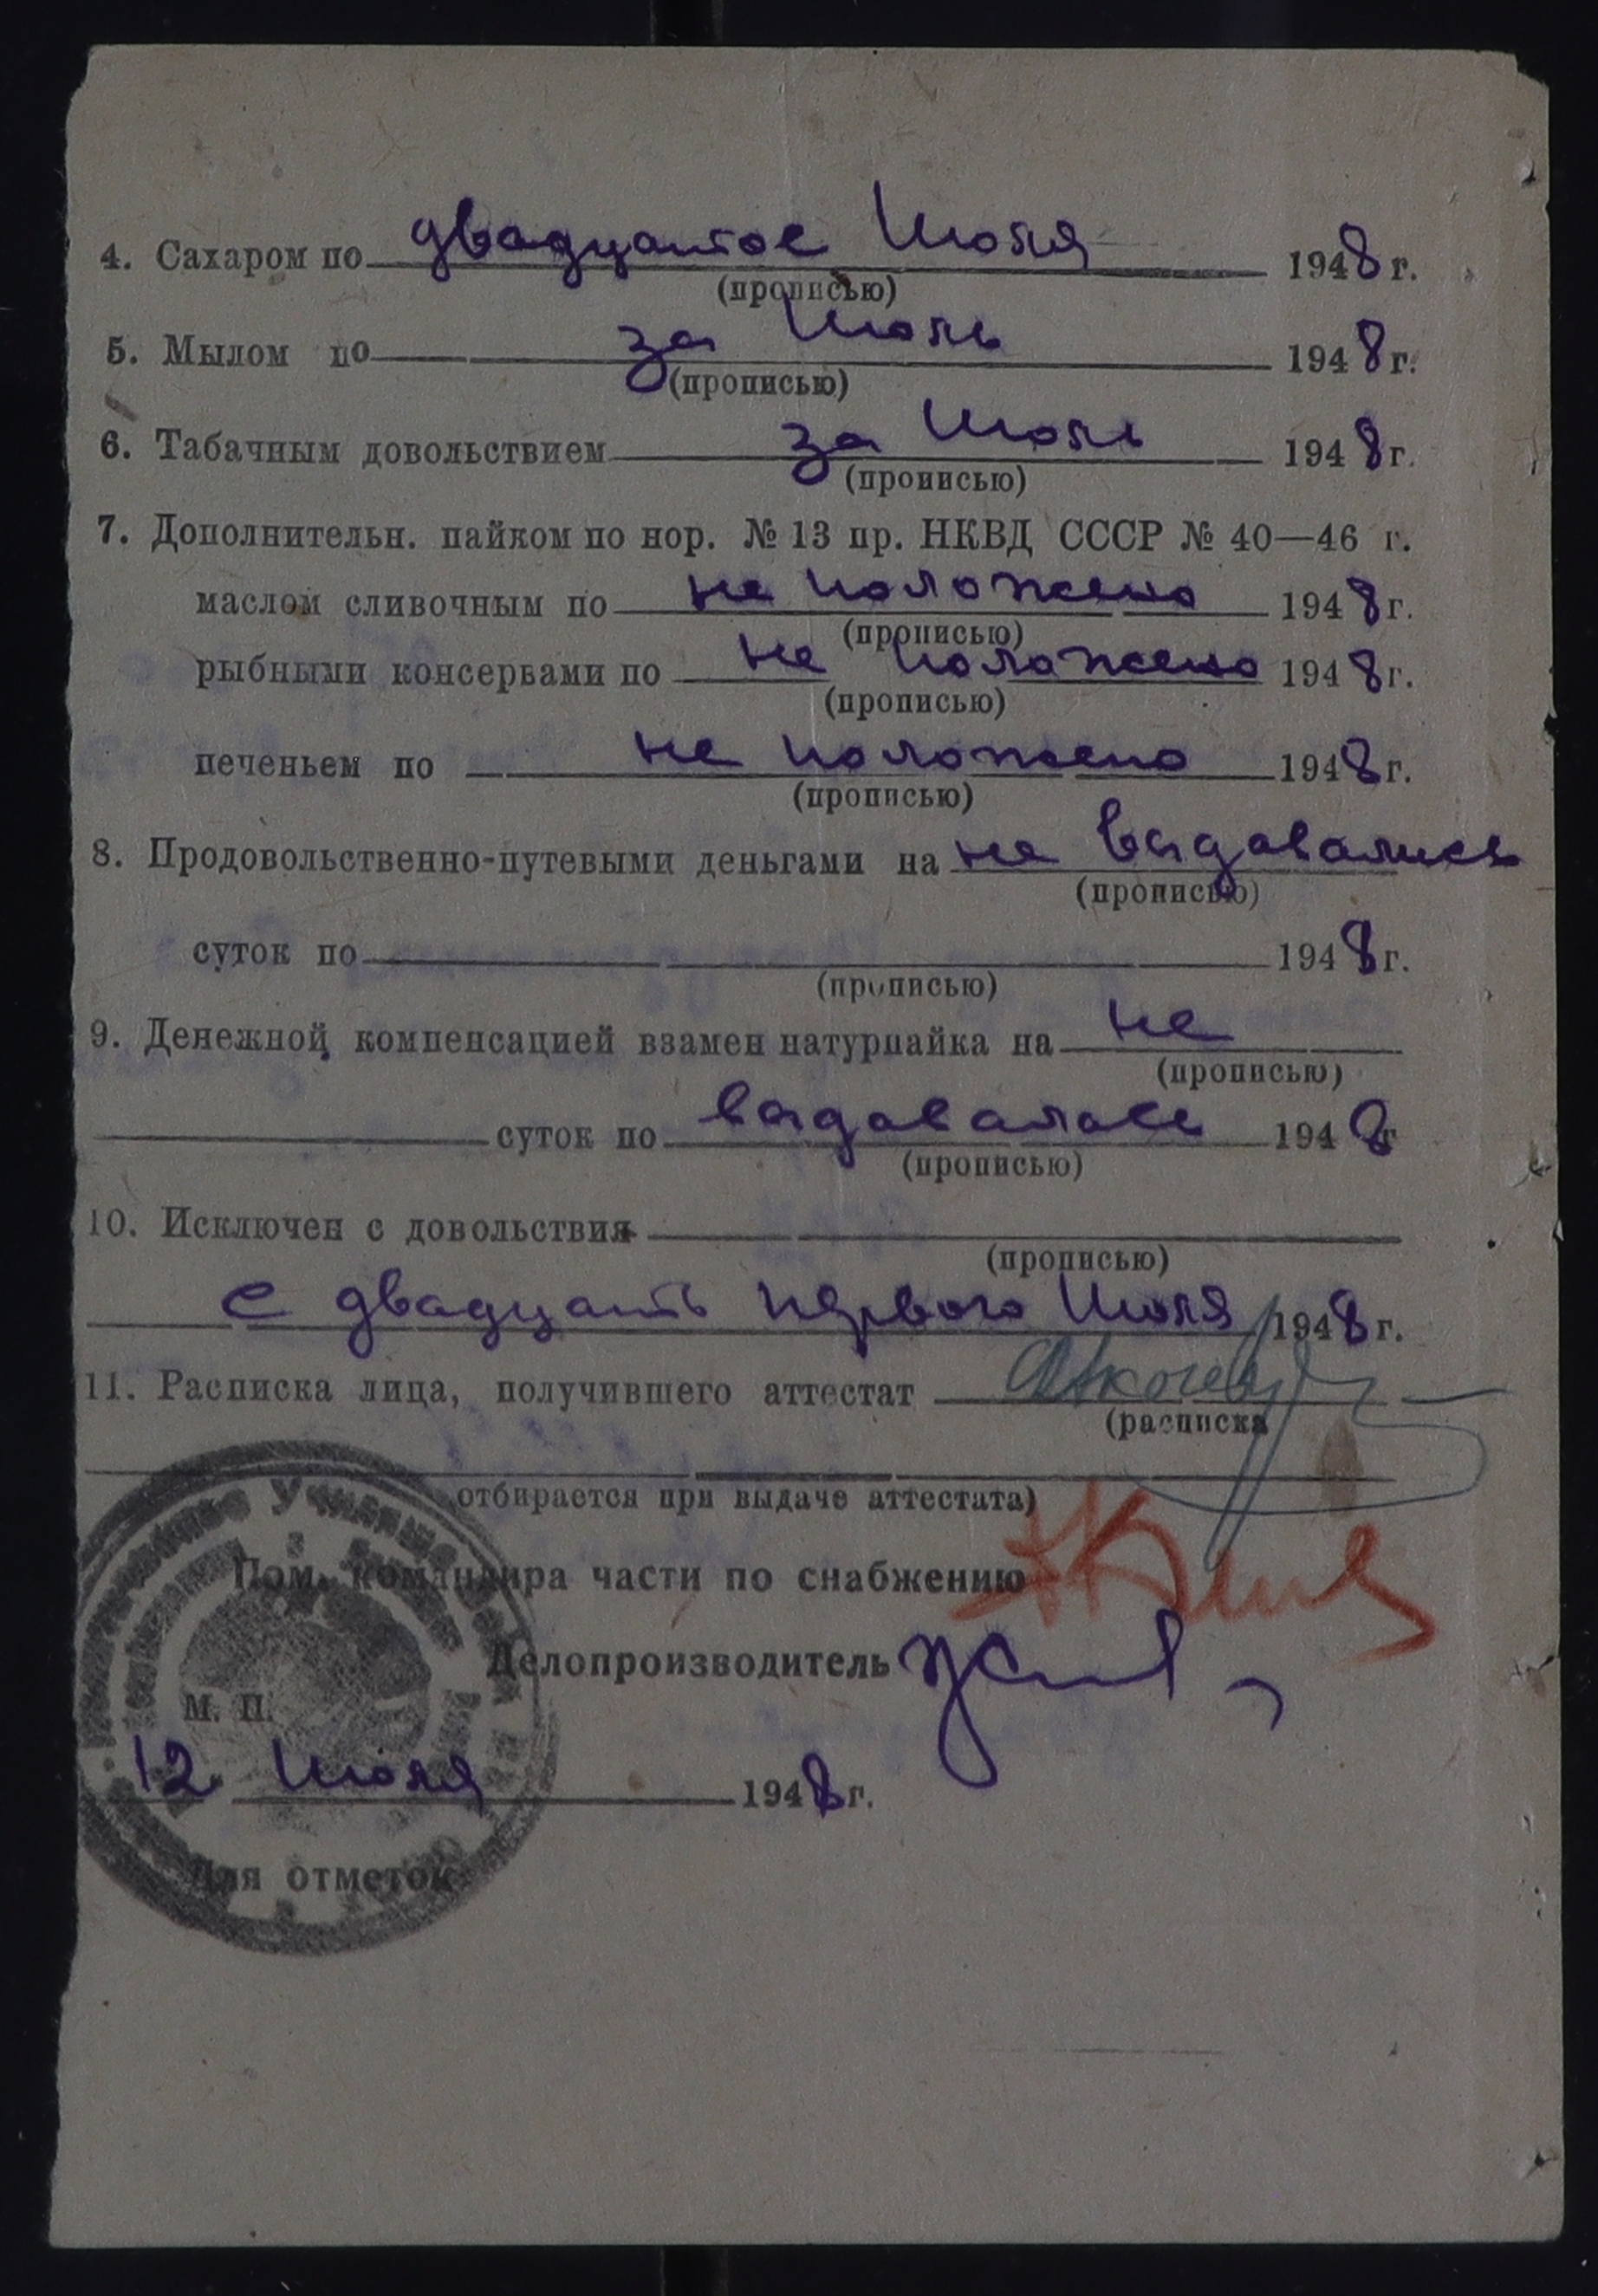 4. Сахаром по двадцатое Июля 1948 г.
(прописью)
5. Мылом по за Июль 1948 г.
(прописью)
6. Табачным довольствием за Июль 1948 г.
(прописью)
7. Дополнительн. пайком по нор. № 13 пр. НКВД СССР № 40—46 г.
маслом сливочным по не положено 1948 г.
(прописью)
рыбными консервами по не положено 1948 г.
(прописью)
печеньем по не положено 1948 г.
(прописью)
8. Продовольственно-путевыми деньгами на не выдавались
(прописью)
суток по 1948 г.
(прописью)
9. Денежной компенсацией взамен натурпайка на не
(прописью)
суток по выдавалась 1948 г
(прописью)
10. Исключен с довольствия
(прописью)
с двадцать первого Июля 1948 г.
11. Расписка лица, получившего аттестат
(расписка
отбирается при выдаче аттестата)
Пом. командира части по снабжению
Делопроизводитель
М. П.
12 Июля 1948 г.
Для отметок